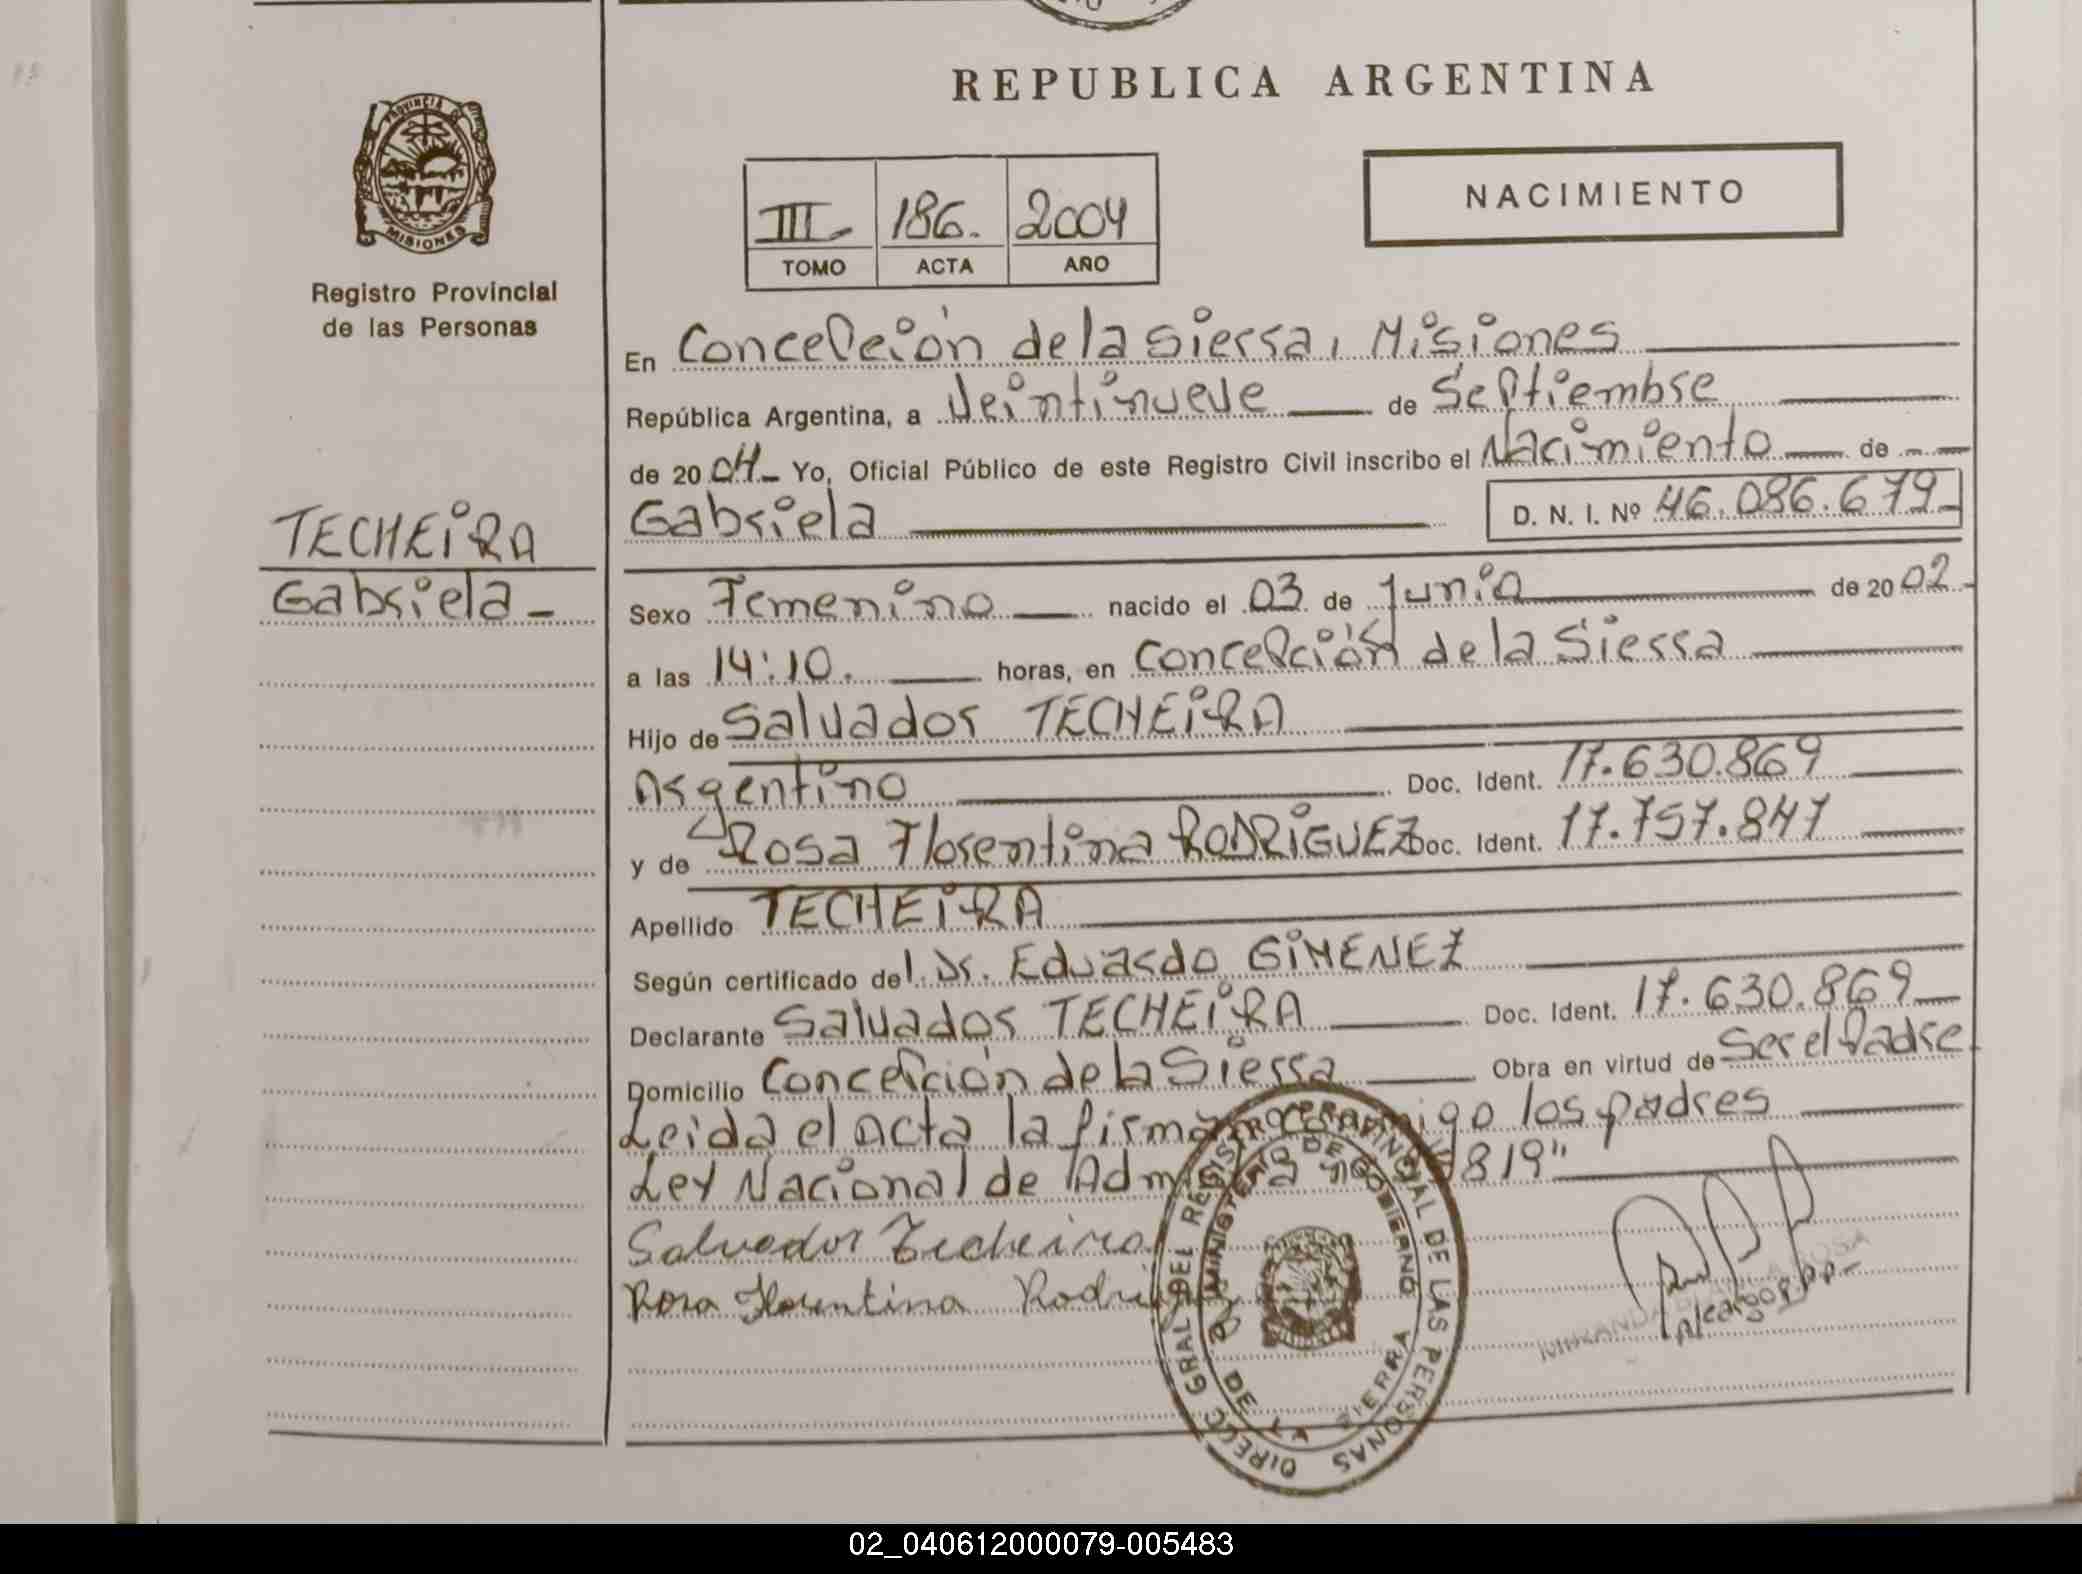 REPUBLICA ARGENTINA
PROVINCIA DE
MISIONES
Registro Provincial
de las Personas
III 186. 2004
TOMO ACTA AÑO
NACIMIENTO
En Concepción de la Sierra, Misiones
República Argentina, a Veintinueve de Septiembre
de 20 04 Yo, Oficial Público de este Registro Civil inscribo el Nacimiento de
Gabriela D. N. I. Nº 46.086.679
TECHEiRA
Gabriela
Sexo Femenino nacido el 03 de Junio de 20 02
a las 14:10. horas, en Concepción de la Sierra
Hijo de Salvador TECHEiRA
Argentino Doc. Ident. 17.630.869
y de Rosa Florentina RODRiGUEZ Doc. Ident. 17.757.847
Apellido TECHEiRA
Según certificado del Dr. Eduardo GiMENEZ
Declarante Salvador TECHEiRA Doc. Ident. 17.630.869
Domicilio Concepción de la Sierra Obra en virtud de Ser el Padre
Leida el Acta la firma los padres
Ley Nacional de 819"
Salvador Techeira
Rosa Florentina
DIRECC. GRAL DEL REGISTRO PROVINCIAL DE LAS PERSONAS
MINISTERIO DE GOBIERNO
DE LA SIERRA
02_040612000079-005483